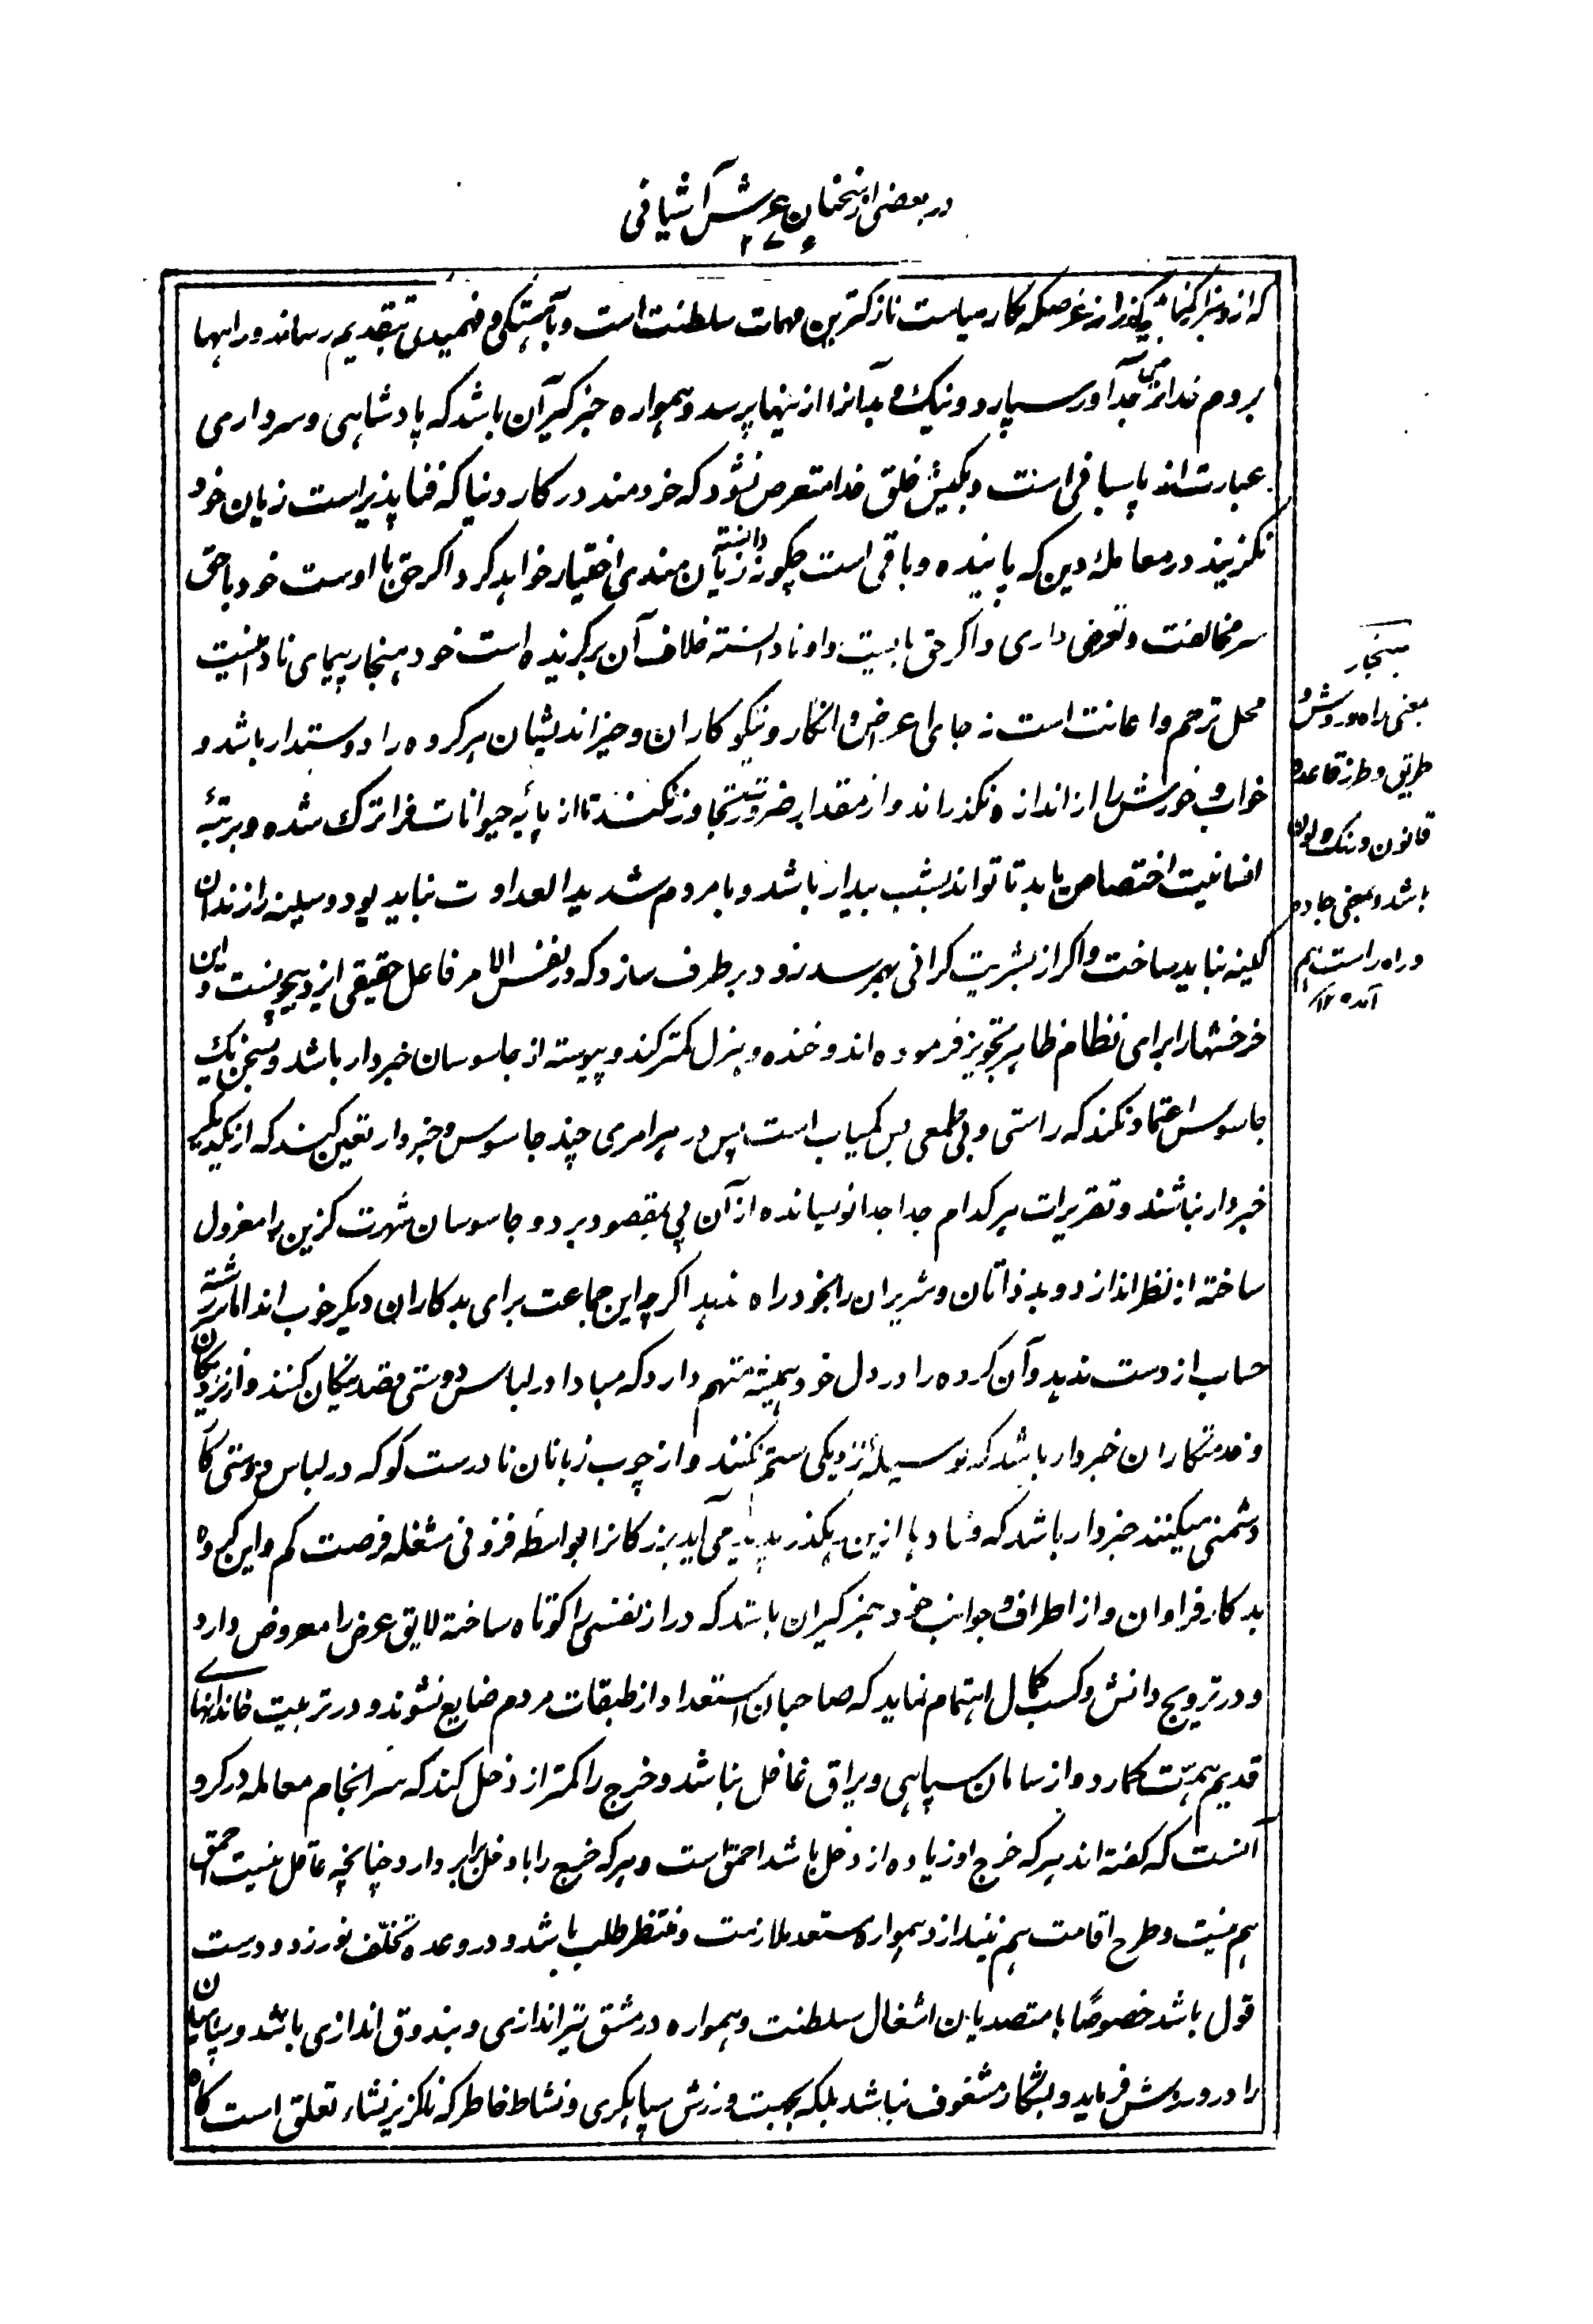 در بعضی از سخنان عرش آشیانی
۲۷۶
که از و بزرگ گناه بگذراند غرضکه کار سیاست نازکترین مهمات سلطنت است و بآهستگی و فهمیدگی بتقدیم رساند و راهها
بمردم خداترس جدآور سپارد و نیک و بد آنرا از ینها پرسد و همواره خبرگیر آن باشد که پادشاهی و سرداری
عبارت از پاسبانی است و بکیش خلق خدا متعرض نشود که خردمند در کار دنیا که فناپذیر است زیان خود
نگزیند در معاملهٔ دین که پاینده و باقی است چگونه دانسته زیان مندی اختیار خواهد کرد اگر حق با اوست خود با حق
سر مخالفت و تعرض داری و اگر حق با تست و او نادانسته خلاف آن برگزیده است خود هنجارپیمای نادانیست
محل ترحم و اعانت است نه جای اعراض و انکار و نیکوکاران و خیراندیشان هر گروه را دوستدار باشد و
خواب و خورش را از اندازه نگذراند و از مقدار ضرورت تجاوز نکند تا از پایهٔ حیوانات فراترک شده و برتبهٔ
انسانیت اختصاص یابد تا تواند بشب بیدار باشد و با مردم شدید العداوت نباید بود و سینه را زندان
کینه نباید ساخت و اگر از بشریت گرانی بهم رسد زود برطرف سازد که در نفس الامر فاعل حقیقی ایزد بیچونست و این
خرخشها را برای نظام ظاهر تجویز فرموده اند و خنده و هزل کمتر کند و پیوسته از جاسوسان خبردار باشد و بسخن یک
جاسوس اعتماد نکند که راستی و بی طمعی بس کمیاب است پس در هر امری چند جاسوس و خبردار تعین کند که از یکدیگر
خبردار نباشند و تقریرات هر کدام جدا جدا نویسانده از آن پی بمقصود برد و جاسوسان شهرت گزین را معزول
ساخته از نظر اندازد و بدذاتان و شریران را بخود راه ندهد اگرچه این جماعت برای بدکاران دیگر خوب اند اما سر رشته
حساب از دست ندهد و آن گروه را در دل خود همیشه متهم دارد که مبادا در لباس دوستی قصد نیکان کنند و از نزدیکان
و خدمتکاران خبردار باشد که بوسیلهٔ نزدیکی ستم نکنند و از چرب زبانان نادرست کو که در لباس دوستی کار
دشمنی میکنند خبردار باشد که فسادها ازین رهگذر پدید می آید بزرگانرا بواسطه فزونی مشغله فرصت کم و این گروه
بدکار فراوان و از اطراف و جوانب خود خبرگیران باشد که دراز نفسی را کوتاه ساخته لایق عرض را معروض دارد
و در ترویج دانش و کسب کمال اهتمام نماید که صاحبان استعداد از طبقات مردم ضایع نشوند و در تربیت خاندانهای
قدیم همت گمارد و از سامان سپاهی و یراق غافل نباشد و خرج را کمتر از دخل کند که سرانجام معامله در گرو
آنست که گفته اند هر که خرج او زیاده از دخل باشد احمق است و هر که خرج را با دخل برابر دارد چنانچه عاقل نیست احمق
هم نیست و طرح اقامت هم نیندازد و همواره مستعد ملازمت و منتظر طلب باشد و در وعده تخلّف نورزد و درست
قول باشد خصوصًا با متصدیان اشغال سلطنت و همواره در مشق تیراندازی و بندوق اندازی باشد و سپاهیان
را در ورزش فرماید و بشکار مشغوف نباشد بلکه بجهت ورزش سپاهگری و نشاط خاطر که ناگزیر نشاء تعلق است گاه
هنجار
بمعنی راه و روش و
طریق و طرز قاعده
قانون و رنگ و لون
باشد و بمعنی جاده
و راه راست هم
آمده ۱۲